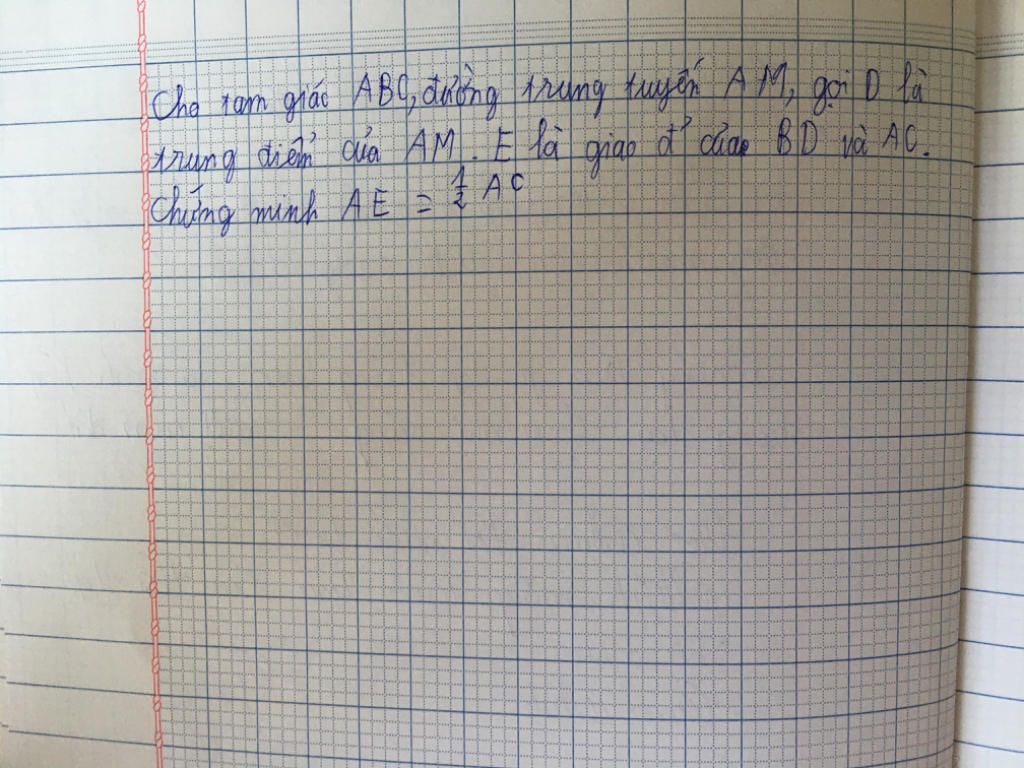 Cho tam giác ABC, đường trung tuyến AM, gọi D là
trung điểm của AM. E là giao đ² của BD và AC.
Chứng minh AE = 1/2 AC